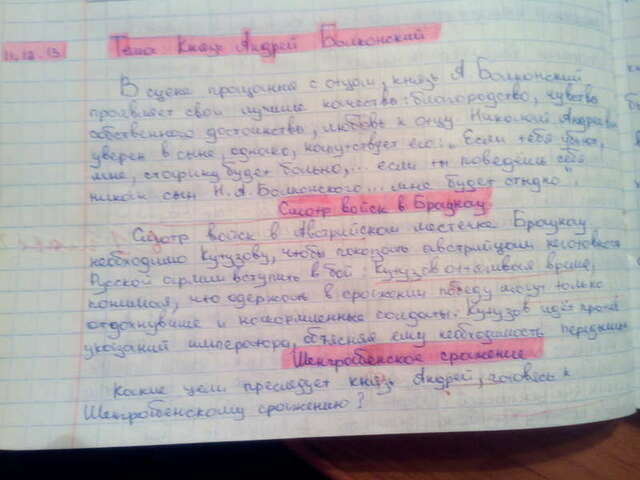 11.12.13. Тема: Князь Андрей Болконский
В сцене прощания с отцом, князь А Болконский
проявляет свои лучшие качества: благородство, чувство
собственного достоинства, любовь к отцу. Николай Андреевич
уверен в сыне, однако, напутствует его: „Если тебя убьют,
мне, старику будет больно,... если ты поведёшь себя
не как сын Н. А. Болконского... мне будет стыдно".
Смотр войск в Браунау
Смотр войск в Австрийском местечке Браунау
необходимо Кутузову, чтобы показать австрийцам неготовность
Русской армии вступать в бой. Кутузов оттягивая время,
понимая, что одержать в сражении победу могут только
отдохнувшие и накормленные солдаты. Кутузов идёт против
указаний императора, объясняя ему необходимость передышки
Шенграбенское сражение
Какие цели преследует князь Андрей, готовясь к
Шенграбенскому сражению?